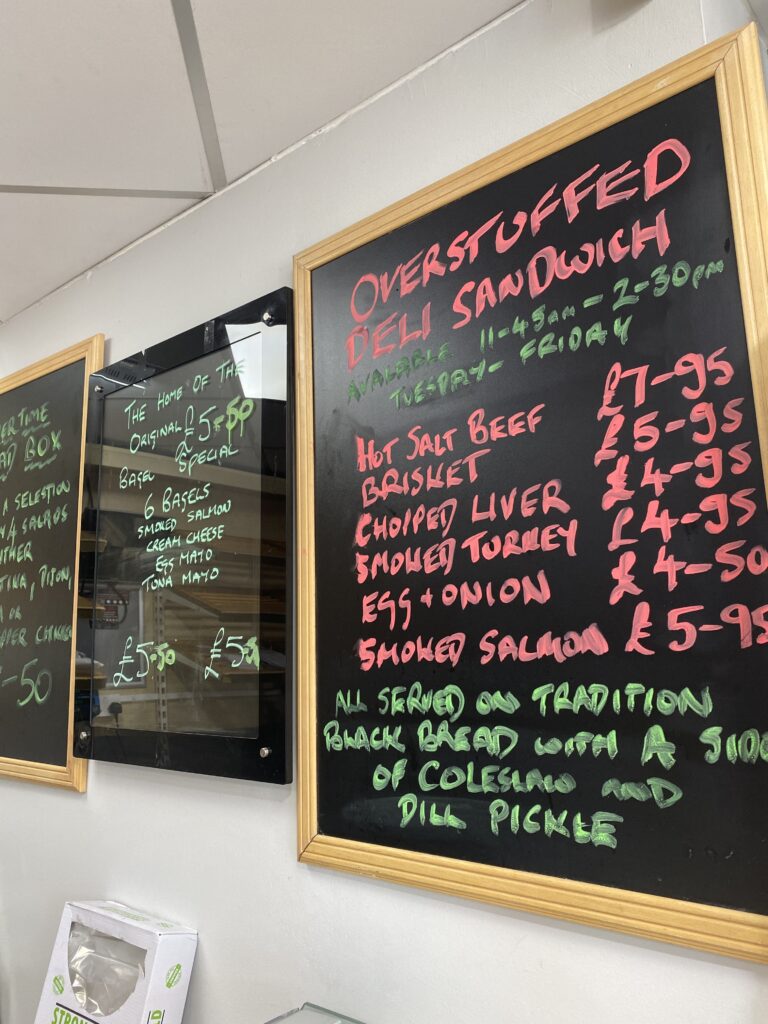 TIME
BOX
A SELECTION
4 SALADS
OR
-50
THE HOME OF THE
ORIGINAL £5-50
BAGEL SPECIAL
6 BAGELS
SMOKED SALMON
CREAM CHEESE
EGG MAYO
TUNA MAYO
£5-50 £5
OVERSTUFFED
DELI SANDWICH
AVALABLE 11-45am - 2-30pm
TUESDAY - FRIDAY
HOT SALT BEEF £7-95
BRISKET £5-95
CHOPPED LIVER £4-95
SMOKED TURKEY £4-95
EGG + ONION £4-50
SMOKED SALMON £5-95
ALL SERVED ON TRADITION
BLACK BREAD WITH A SIDE
OF COLESLAW AND
DILL PICKLE
STRON